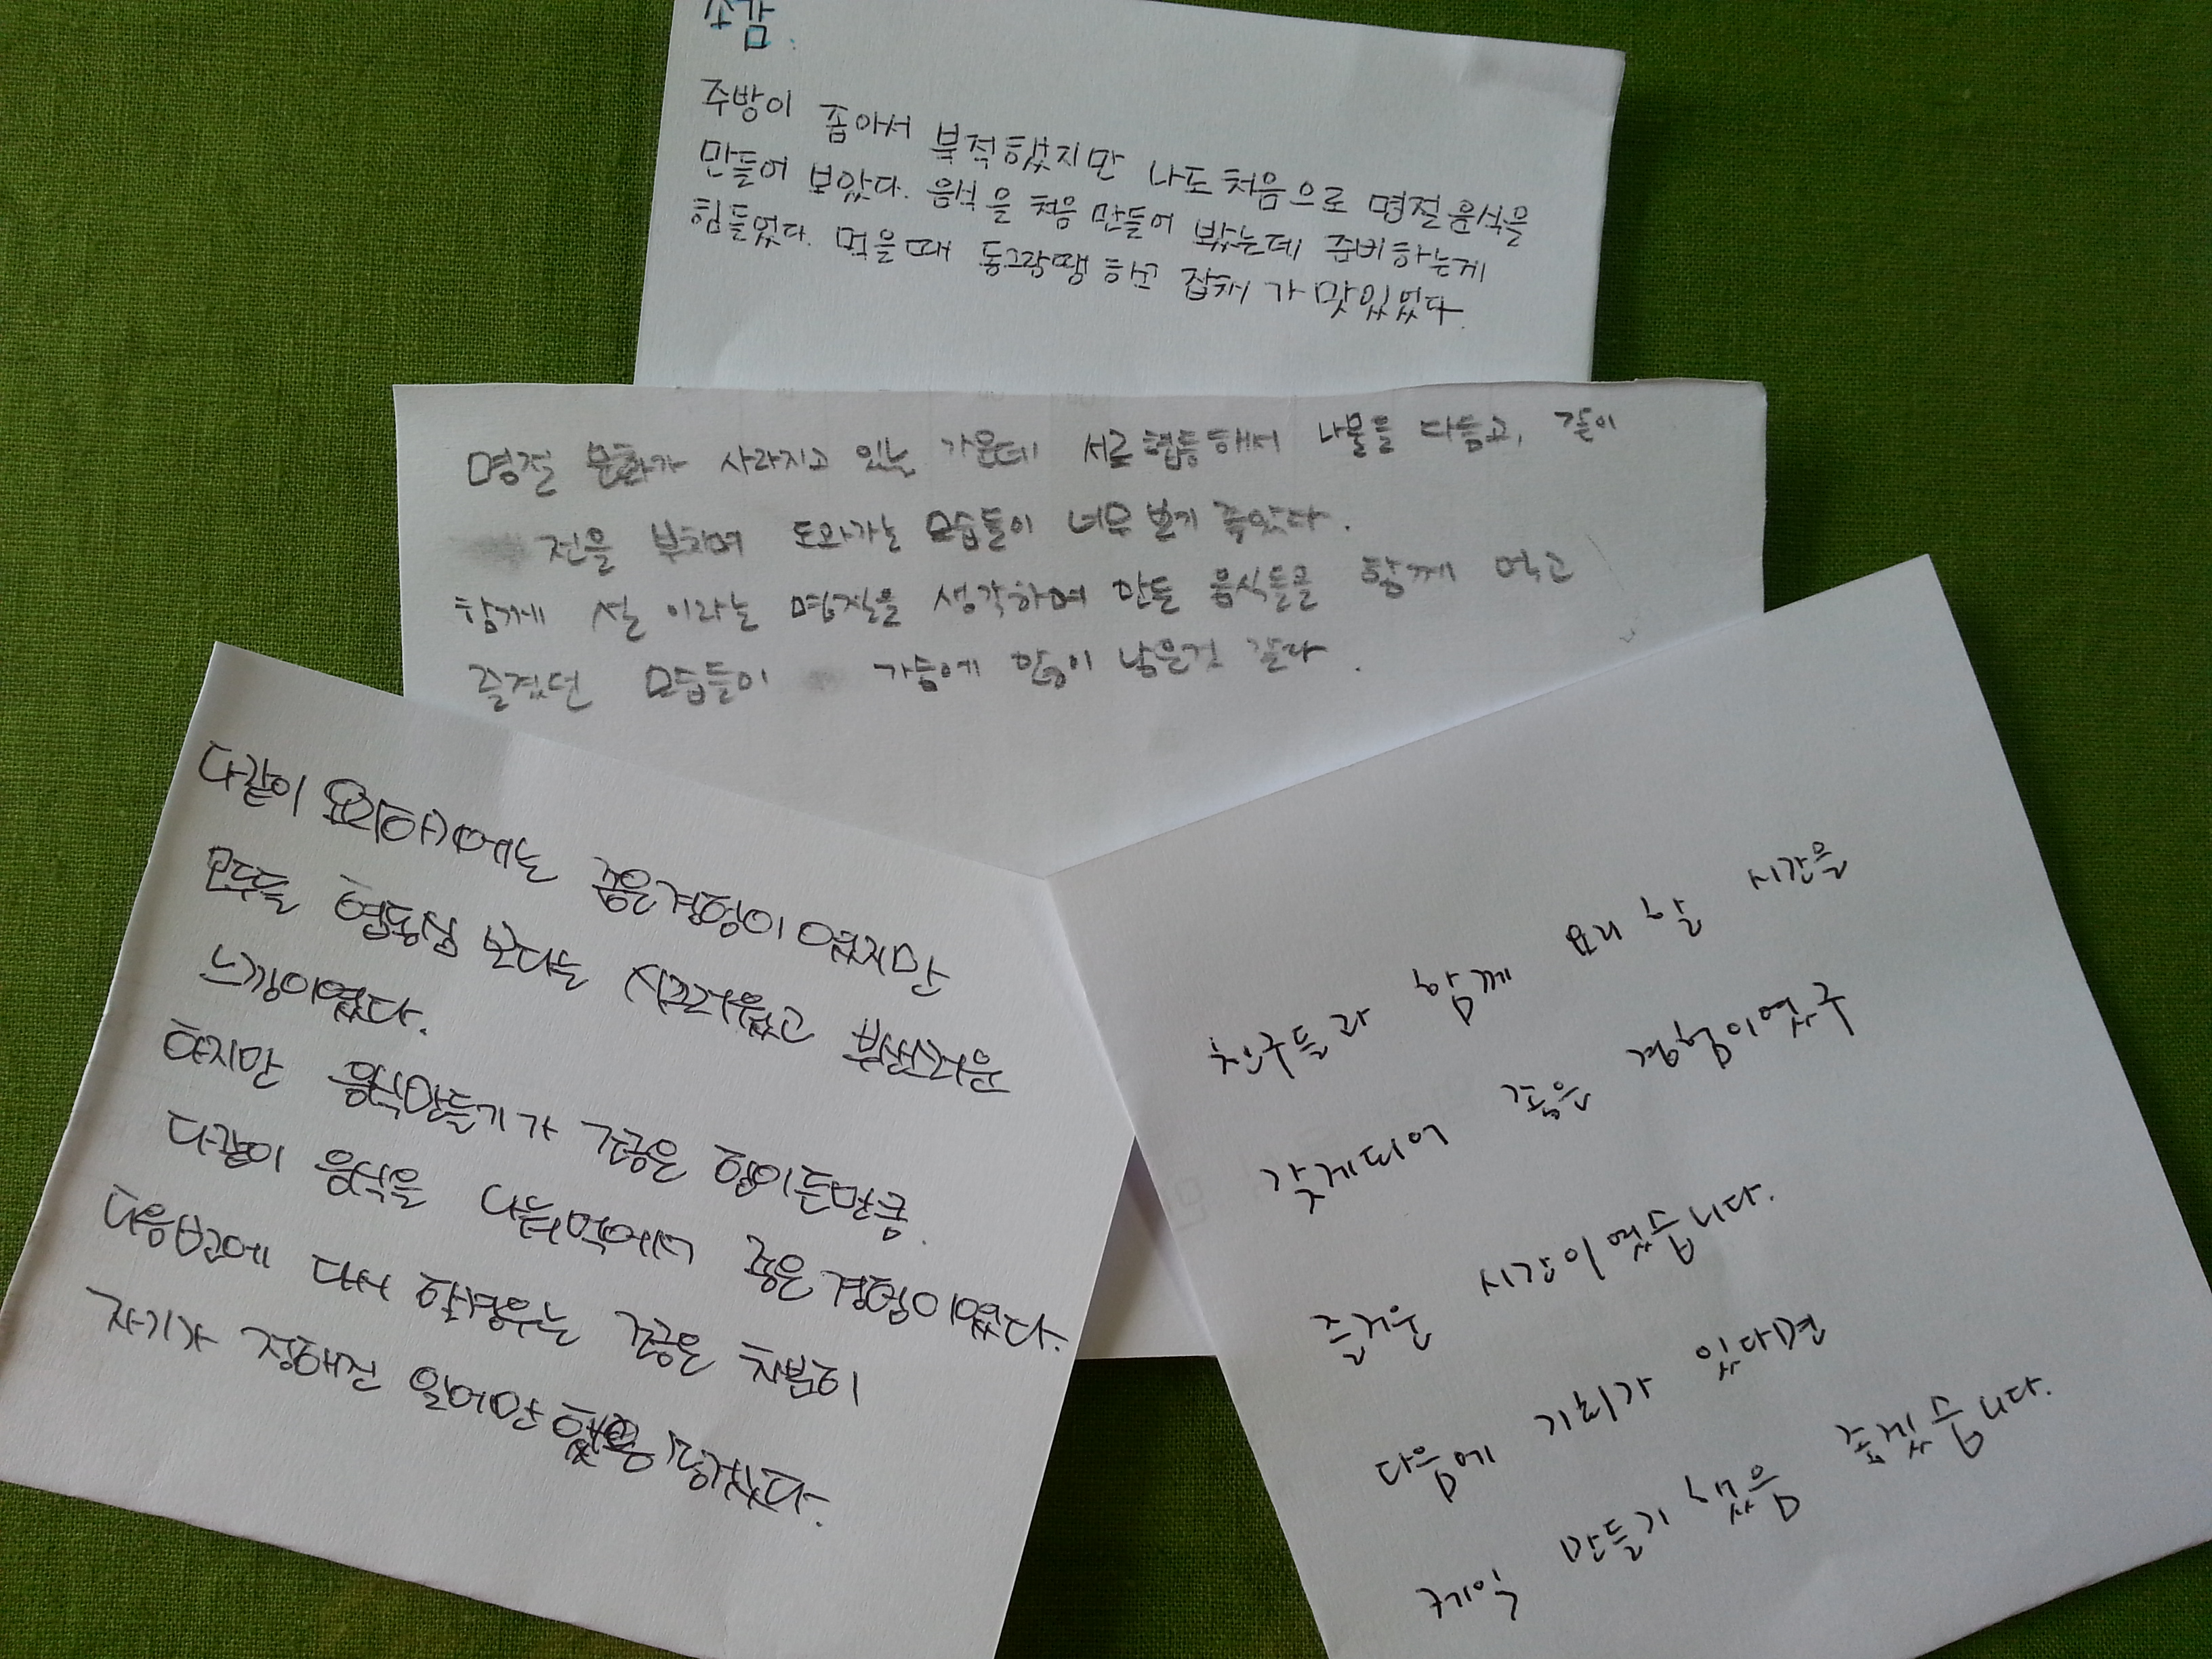 소감.
주방이 좁아서 북적했지만 나도 처음으로 명절음식을
만들어 보았다. 음식을 처음 만들어 봤는데 준비하는게
힘들었다. 먹을때 동그랑땡 하고 잡채가 맛있었다.
명절 문화가 사라지고 있는 가운데 서로 협동해서 나물을 다듬고, 같이
전을 부치며 도와가는 모습들이 너무 보기 좋았다.
함께 설 이라는 명절을 생각하며 만든 음식들을 함께 먹고
즐겼던 모습들이 가슴에 많이 남은것 같다.
다같이 요리하기에는 좋은경험이였지만
모두들 협동심 보다는 시끄러웠고 부산스러운
느낌이였다.
하지만 음식만들기가 조금은 힘이든만큼
다같이 음식을 나눠먹어서 좋은경험이였다.
다음번에 다시 할경우는 조금은 차분히
자기가 정해진 일에만 했음 좋겠다.
친구들과 함께 요리 할 시간을
갖게되어 좋은 경험이였구
즐거운 시간이였습니다.
다음에 기회가 있다면
케익 만들기 했음 좋겠습니다.